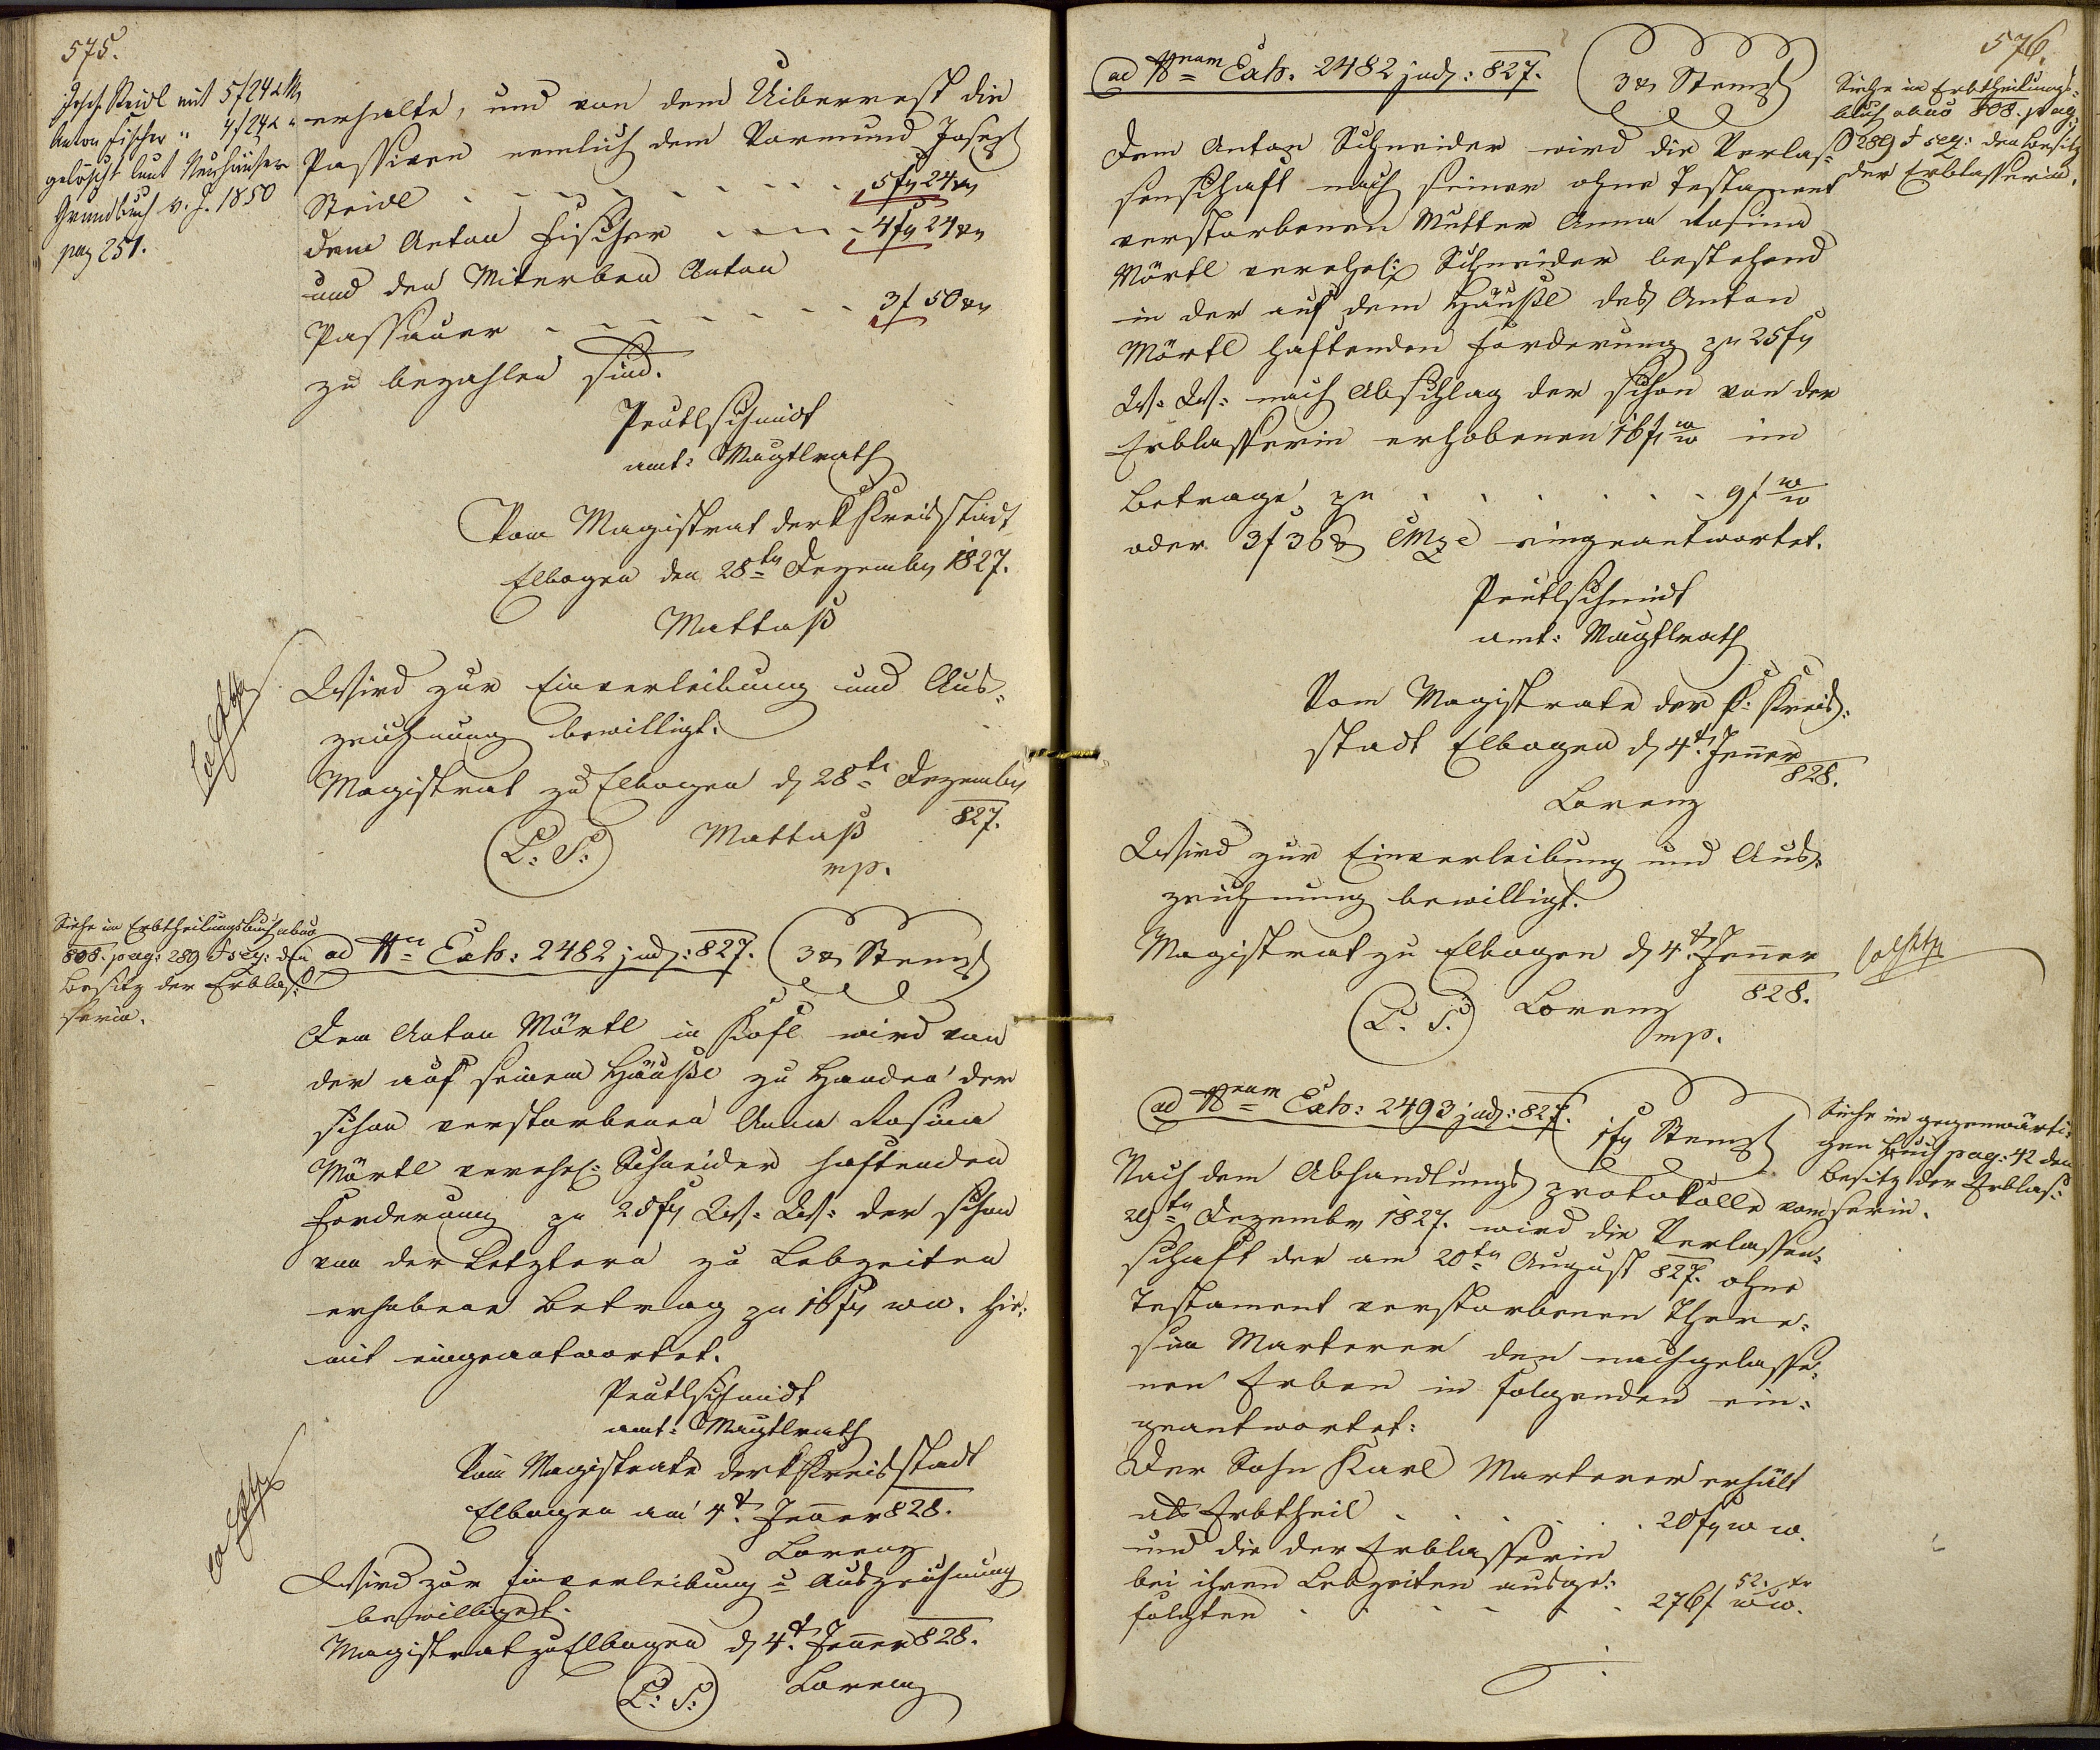 575.
Josef Steidl mit 5f 24x CM
Anton Fischer " 4f 24x "
gelöscht laut Neuhäuser
Grundbuch v. J. 1850
pag 251.
erhalte, und von dem Uiberrest die
Passiven nemlich dem Vormund Josef
Steidl - - - - - - - 5 fl 24 xr
dem Anton Fischer - - - - 4 fl 24 xr
und den Miterben Anton
Passauer - - - - - - - 3 f 50 xr
zu bezahlen sind.
Peutlschmidt
amt: Magtlrath
Vom Magistrat der k Kreisstadt
Elbogen den 28ten Dezember 1827.
Mattasch
Wird zur Einverleibung und Aus-
zeichnung bewilligt.
Magistrat zu Elbogen d 28te Dezember
827.
(L: S:) Mattasch
mp.
Siehe im Erbtheilungsbuch abuo
808. pag: 289 & seq: den
Besitz der Erblas-
serin.
ad Nrm Exh: 2482 jud: 827. 3 x Stempl
Dem Anton Mörtl in Kofl wird von
der auf seinem Häusl zu Handen der
schon verstorbenen Anna Rosina
Mörtl verehel: Schneider haftenden
Forderung zu 25 fl W: W: der schon
von der Letztern zu Lebzeiten
erhobene Betrag zu 16 fl ww. hie-
mit eingeantwortet.
Peutlschmidt
amt: Magtlrath
Vom Magistrate der k Kreisstadt
Elbogen am 4t. Jenner 828.
Lorenz
Wird zur Einverleibung u Auszeichnung
bewilliget.
Magistrat zu Elbogen d 4t. Jenner 828.
(L: S:) Lorenz
576.
ad Nram Exh. 2482 jud: 827. 3 x Stempl
Siehe in Erbtheilungs-
buch abuo 808. pag:
289 & seq: den Besitz
der Erblasserin.
Dem Anton Schneider wird die Verlas-
senschaft nach seiner ohne Testament
verstorbenen Mutter Anna Rosina
Mörtl verehel: Schneider bestehend
in der auf dem Häusl des Anton
Mörtl haftenden Forderung zu 25 fl
W: W: nach Abschlag der schon von der
Erblasserin erhobenen 16 fl ww im
Betrage zu . . . . . . 9 f ww
oder 3 f 36 x CMze eingeantwortet.
Peutlschmidt
amt: Magtlrath
Vom Magistrate der k: Kreis-
stadt Elbogen d 4t. Jenner
828.
Lorenz
Wird zur Einverleibung und Aus-
zeichnung bewilligt.
Magistrat zu Elbogen d 4t. Jenner
828.
(L. S.) Lorenz
mp.
ad Nram Exh: 2493 jud: 827. 1 fl Stempl
Siehe im gegenwärti-
gen Buch pag: 42 den
Besitz der Erblas-
serin.
Nach dem Abhandlungsprotokolle vom
29ten Dezember 1827. wird die Verlassen-
schaft der am 20ten August 827. ohne
Testament verstorbenen There-
sia Marterer den nachgelasse-
nen Erben in Folgenden ein-
geantwortet:
Der Sohn Karl Marterer erhält
als Erbtheil . . . . . 20 fl w w.
und die der Erblasserin
bei ihren Lebzeiten ausge-
folgten . . . . . . 276 f 52. xr ww.